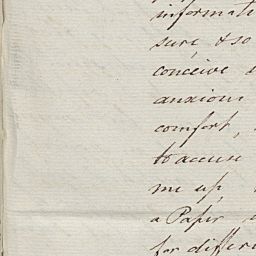 informati
sure, & so
conceive
anxious
comfort,
to accuse
me up,
a Paper
for differ